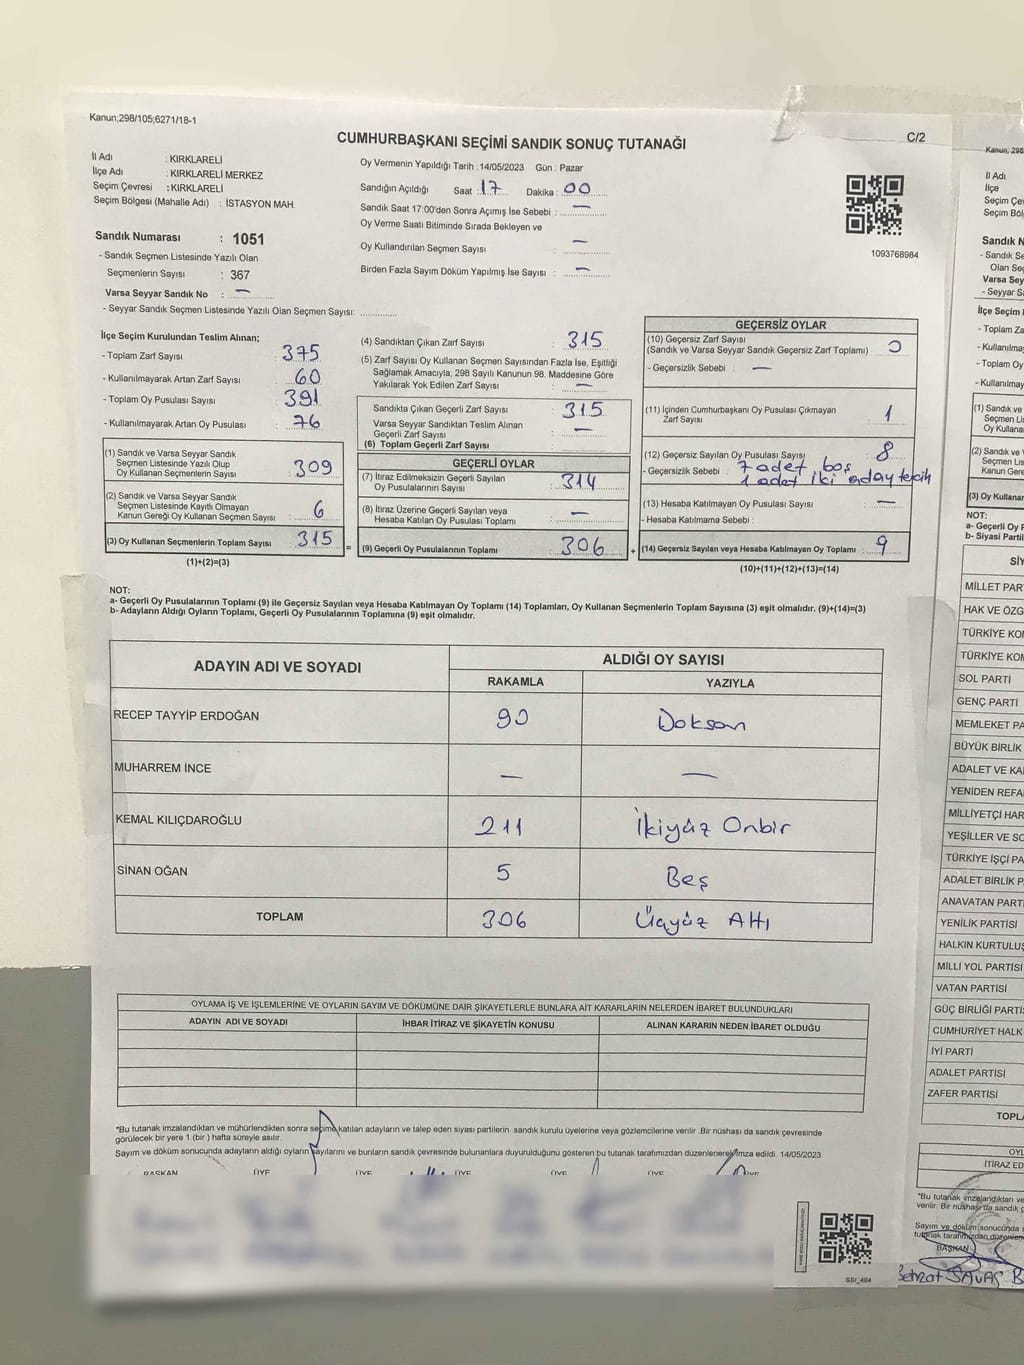 Kanun;298/105;6271/18-1
CUMHURBAŞKANI SEÇİMİ SANDIK SONUÇ TUTANAĞI
C/2
İl Adı : KIRKLARELİ
İlçe Adı : KIRKLARELİ MERKEZ
Seçim Çevresi : KIRKLARELİ
Seçim Bölgesi (Mahalle Adı) : İSTASYON MAH.
Sandık Numarası : 1051
- Sandık Seçmen Listesinde Yazılı Olan
Seçmenlerin Sayısı : 367
Varsa Seyyar Sandık No : —
- Seyyar Sandık Seçmen Listesinde Yazılı Olan Seçmen Sayısı: ..............
Oy Vermenin Yapıldığı Tarih : 14/05/2023 Gün : Pazar
Sandığın Açıldığı Saat 17 Dakika : 00
Sandık Saat 17:00'den Sonra Açımış İse Sebebi : —
Oy Verme Saati Bitiminde Sırada Bekleyen ve
Oy Kullandırılan Seçmen Sayısı —
Birden Fazla Sayım Döküm Yapılmış İse Sayısı : —
1093768984
İlçe Seçim Kurulundan Teslim Alınan;
- Toplam Zarf Sayısı : 375
- Kullanılmayarak Artan Zarf Sayısı : 60
- Toplam Oy Pusulası Sayısı : 391
- Kullanılmayarak Artan Oy Pusulası : 76
(1) Sandık ve Varsa Seyyar Sandık
Seçmen Listesinde Yazılı Olup
Oy Kullanan Seçmenlerin Sayısı : 309
(2) Sandık ve Varsa Seyyar Sandık
Seçmen Listesinde Kayıtlı Olmayan
Kanun Gereği Oy Kullanan Seçmen Sayısı : 6
(3) Oy Kullanan Seçmenlerin Toplam Sayısı : 315
(1)+(2)=(3)
(4) Sandıktan Çıkan Zarf Sayısı : 315
(5) Zarf Sayısı Oy Kullanan Seçmen Sayısından Fazla İse, Eşitliği
Sağlamak Amacıyla, 298 Sayılı Kanunun 98. Maddesine Göre
Yakılarak Yok Edilen Zarf Sayısı : —
Sandıkta Çıkan Geçerli Zarf Sayısı : 315
Varsa Seyyar Sandıktan Teslim Alınan
Geçerli Zarf Sayısı : —
(6) Toplam Geçerli Zarf Sayısı
GEÇERLİ OYLAR
(7) İtiraz Edilmeksizin Geçerli Sayılan
Oy Pusulalarının Sayısı : 314
(8) İtiraz Üzerine Geçerli Sayılan veya
Hesaba Katılan Oy Pusulası Toplamı : —
= (9) Geçerli Oy Pusulalarının Toplamı : 306
GEÇERSİZ OYLAR
(10) Geçersiz Zarf Sayısı
(Sandık ve Varsa Seyyar Sandık Geçersiz Zarf Toplamı) : 0
- Geçersizlik Sebebi : —
(11) İçinden Cumhurbaşkanı Oy Pusulası Çıkmayan
Zarf Sayısı : 1
(12) Geçersiz Sayılan Oy Pusulası Sayısı : 8
- Geçersizlik Sebebi : 7 adet boş
1 adet iki aday tercih
(13) Hesaba Katılmayan Oy Pusulası Sayısı : —
- Hesaba Katılmama Sebebi :
+ (14) Geçersiz Sayılan veya Hesaba Katılmayan Oy Toplamı : 9
(10)+(11)+(12)+(13)=(14)
NOT:
a- Geçerli Oy Pusulalarının Toplamı (9) ile Geçersiz Sayılan veya Hesaba Katılmayan Oy Toplamı (14) Toplamları, Oy Kullanan Seçmenlerin Toplam Sayısına (3) eşit olmalıdır. (9)+(14)=(3)
b- Adayların Aldığı Oyların Toplamı, Geçerli Oy Pusulalarının Toplamına (9) eşit olmalıdır.
ADAYIN ADI VE SOYADI
ALDIĞI OY SAYISI
RAKAMLA YAZIYLA
RECEP TAYYİP ERDOĞAN 90 Doksan
MUHARREM İNCE — —
KEMAL KILIÇDAROĞLU 211 İkiyüz Onbir
SİNAN OĞAN 5 Beş
TOPLAM 306 Üçyüz Altı
OYLAMA İŞ VE İŞLEMLERİNE VE OYLARIN SAYIM VE DÖKÜMÜNE DAİR ŞİKAYETLERLE BUNLARA AİT KARARLARIN NELERDEN İBARET BULUNDUKLARI
ADAYIN ADI VE SOYADI İHBAR İTİRAZ VE ŞİKAYETİN KONUSU ALINAN KARARIN NEDEN İBARET OLDUĞU
*Bu tutanak imzalandıktan ve mühürlendikten sonra seçime katılan adayların ve talep eden siyasi partilerin sandık kurulu üyelerine veya gözlemcilerine verilir .Bir nüshası da sandık çevresinde
görülecek bir yere 1 (bir ) hafta süreyle asılır.
Sayım ve döküm sonucunda adayların aldığı oyların sayılarını ve bunların sandık çevresinde bulunanlara duyurulduğunu gösteren bu tutanak tarafımızdan düzenlenerek imza edildi. 14/05/2023
BAŞKAN ÜYE ÜYE ÜYE ÜYE ÜYE
SSI_404
Kanun; 298
İl Adı
İlçe
Seçim Çe
Seçim Böl
Sandık N
- Sandık Se
Olan Se
Varsa Sey
- Seyyar S
İlçe Seçim
- Toplam Za
- Kullanılma
- Toplam Oy
- Kullanılmay
(1) Sandık ve
Seçmen Li
Oy Kullana
(2) Sandık ve
Seçmen Lis
Kanun Gere
(3) Oy Kullanan
NOT:
a- Geçerli Oy P
b- Siyasi Partil
SİY
MİLLET PAR
HAK VE ÖZG
TÜRKİYE KO
TÜRKİYE KO
SOL PARTİ
GENÇ PARTİ
MEMLEKET PA
BÜYÜK BİRLİK
ADALET VE KA
YENİDEN REFA
MİLLİYETÇİ HAR
YEŞİLLER VE SO
TÜRKİYE İŞÇİ PA
ADALET BİRLİK P
ANAVATAN PARTİ
YENİLİK PARTİSİ
HALKIN KURTULUŞ
MİLLİ YOL PARTİSİ
VATAN PARTİSİ
GÜÇ BİRLİĞİ PARTİS
CUMHURİYET HALK
İYİ PARTİ
ADALET PARTİSİ
ZAFER PARTİSİ
TOPL
OYL
İTİRAZ ED
*Bu tutanak imzalandıktan ve
verilir. Bir nüshası da sandık ç
Sayım ve döküm sonucunda s
tutanak tarafımızdan düzenlen
BAŞKAN
Behzat SAVAŞ B